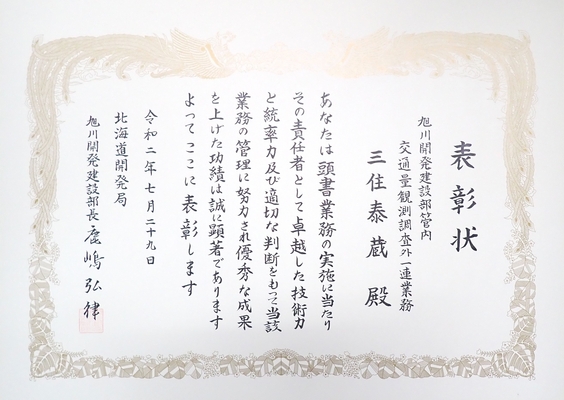 表彰状
旭川開発建設部管内
交通量観測調査外一連業務
三住泰蔵 殿
あなたは頭書業務の実施に当たり
その責任者として卓越した技術力
と統率力及び適切な判断をもって当該
業務の管理に努力され優秀な成果
を上げた功績は誠に顕著であります
よってここに表彰します
令和二年七月二十九日
北海道開発局
旭川開発建設部長 鹿嶋弘律